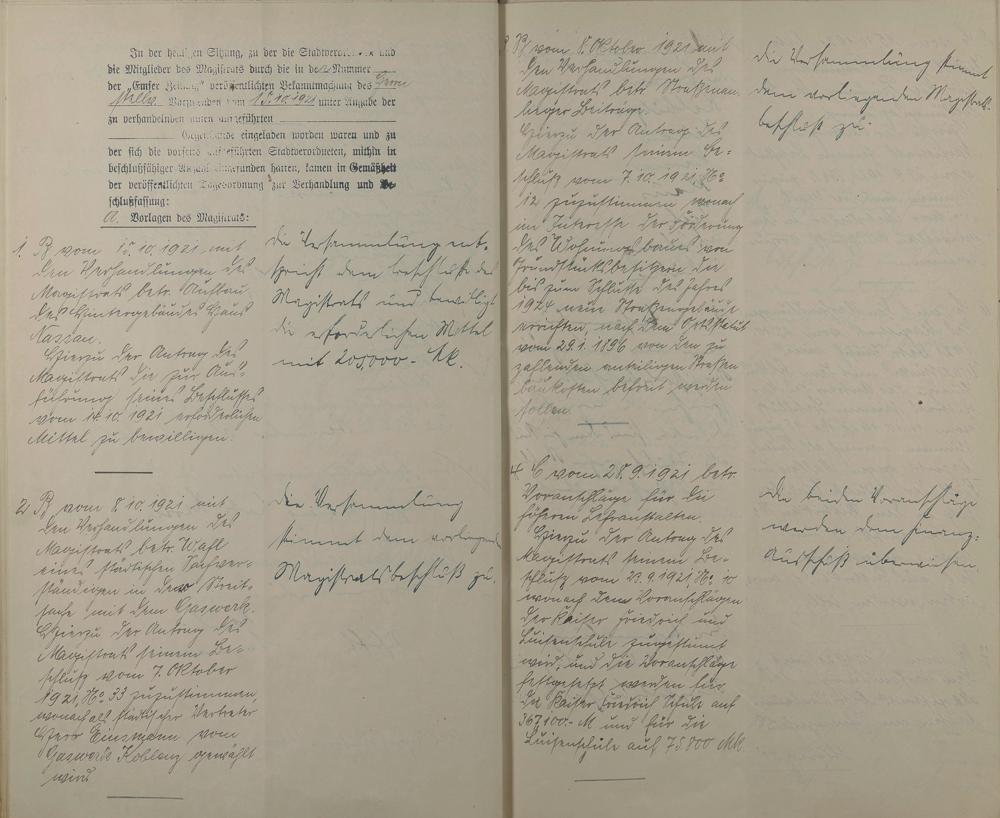 In der heutigen Sitzung, zu der die Stadtverordneten und
die Mitglieder des Magistrats durch die in der Nummer
der „Emser Zeitung“ veröffentlichten Bekanntmachung des
Vorsitzenden vom 15.10.1921 unter Angabe der
zu verhandelnden unten aufgeführten
Gegenstände eingeladen worden waren und zu
der sich die vorseits aufgeführten Stadtverordneten, mithin in
beschlußfähiger Anzahl eingefunden hatten, kamen in Gemäßheit
der veröffentlichten Tagesordnung zur Verhandlung und Be-
schlußfassung:
A. Vorlagen des Magistrats:
1. B vom 15.10.1921 mit
den Verhandlungen des
Magistrats betr. Ausbau
des Hintergebäudes Haus
Nassau.
Hierzu der Antrag des
Magistrats die zur Aus-
führung seines Beschlusses
vom 14.10.1921 erforderlichen
Mittel zu bewilligen.
Die Versammlung ent-
spricht dem Beschlusse des
Magistrats und bewilligt
die erforderlichen Mittel
mit 205,000.- Mk.
2. B vom 8.10.1921 mit
den Verhandlungen des
Magistrats betr. Wahl
eines städtischen Sachver-
ständigen in der Streit-
sache mit dem Gaswerk.
Hierzu der Antrag des
Magistrats seinem Be-
schluß vom 7. Oktober
1921, No 33 zuzustimmen,
wonach als städtischer Vertreter
Herr Einsmann vom
Gaswerk Koblenz gewählt
wird
Die Versammlung
stimmt dem vorliegenden
Magistratsbeschluß zu.
3 B vom 8. Oktober 1921 mit
den Verhandlungen des
Magistrats betr. Straßenan-
lieger Beiträge.
Hierzu der Antrag des
Magistrats seinem Be-
schluß vom 7.10.1921, No
12 zuzustimmen, wonach
im Interesse der Förderung
des Wohnungsbaues von
Grundstücksbesitzern die
bis zum Schlusse des Jahres
1924 neue Straßengebäude
errichten, nach dem Ortsstatut
vom 29.1.1896 von den zu
zahlenden anteiligen Straßen-
baukosten befreit werden
sollen.
Die Versammlung stimmt
dem vorliegenden Magistrats-
beschluß zu.
4. C vom 28.9.1921 betr.
Voranschläge für die
höheren Lehranstalten.
Hierzu der Antrag des
Magistrats seinem Be-
schluß vom 23.9.1921 No 10
wonach dem Voranschlägen
der Kaiser Friedrich und
Luisenschule zugestimmt
wird, und die Voranschläge
festgesetzt werden für
die Kaiser Friedrich Schule auf
367,100.- M und für die
Luisenschule auf 75800 Mk.
Die beiden Voranschläge
werden dem Finanz-
Ausschuß überwiesen.